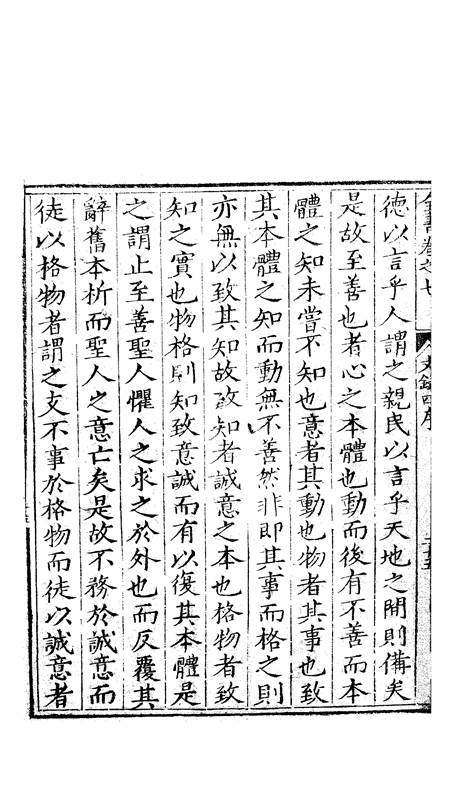 全書卷之七 文錄四序 二十五
德以言乎人謂之親民以言乎天地之間則備矣
是故至善也者心之本體也動而後有不善而本
體之知未嘗不知也意者其動也物者其事也致
其本體之知而動無不善然非即其事而格之則
亦無以致其知故致知者誠意之本也格物者致
知之實也物格則知致意誠而有以復其本體是
之謂止至善聖人懼人之求之於外也而反覆其
辭舊本析而聖人之意亡矣是故不務於誠意而
徒以格物者謂之支不事於格物而徒以誠意者